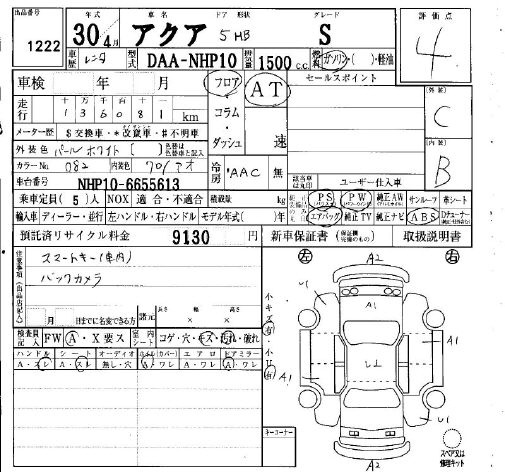 出品番号 年式 車名 ドア 形状 グレード 評価点
1222 30年 4月 アクア 5HB S 4
車歴 レンタ 型式 DAA-NHP10 排気量 1500 c.c. 燃料 ガソリン・( )・軽油
車検 年 月 フロア・コラム・ダッシュ AT 速 セールスポイント
(外装) C
走行 十 万 千 百 十 一
136081 km
メーター歴 $交換車・*改竄車・#不明車
(内装) B
外装色 パールホワイト ( ) 色替は色替車と記入
カラーNo. 082 内装色 クロ/アオ 冷房 AAC 無
車台番号 NHP10-6655613 ユーザー仕入車
乗車定員 (5)人 NOX 適合・不適合 積載量 kg PS PW 純正AW サンルーフ 革シート
輸入車 ディーラー・並行 左ハンドル・右ハンドル モデル年式( )年 エアバック 純正TV 純正ナビ ABS
預託済リサイクル料金 9130 円 新車保証書 取扱説明書
注意事項(出品店記入)
スマートキー(車内)
バックカメラ
左 右
A2
月 日までに名変できる方 諸元 長さ 幅 高さ
× ×
検査員記入 FW A・X 要ス 室内シート コゲ・穴・キズ・汚れ・破れ
ハンドル シート オーディオ (カバー) エアロ ドアミラー
A・スレ A・スレ 無し・穴 A・ワレ A・ワレ A・ワレ
小キズ 有・小凹 有
U1
A1
A1
A1
U1
A2
キーコーナー
スペア又は修理キット